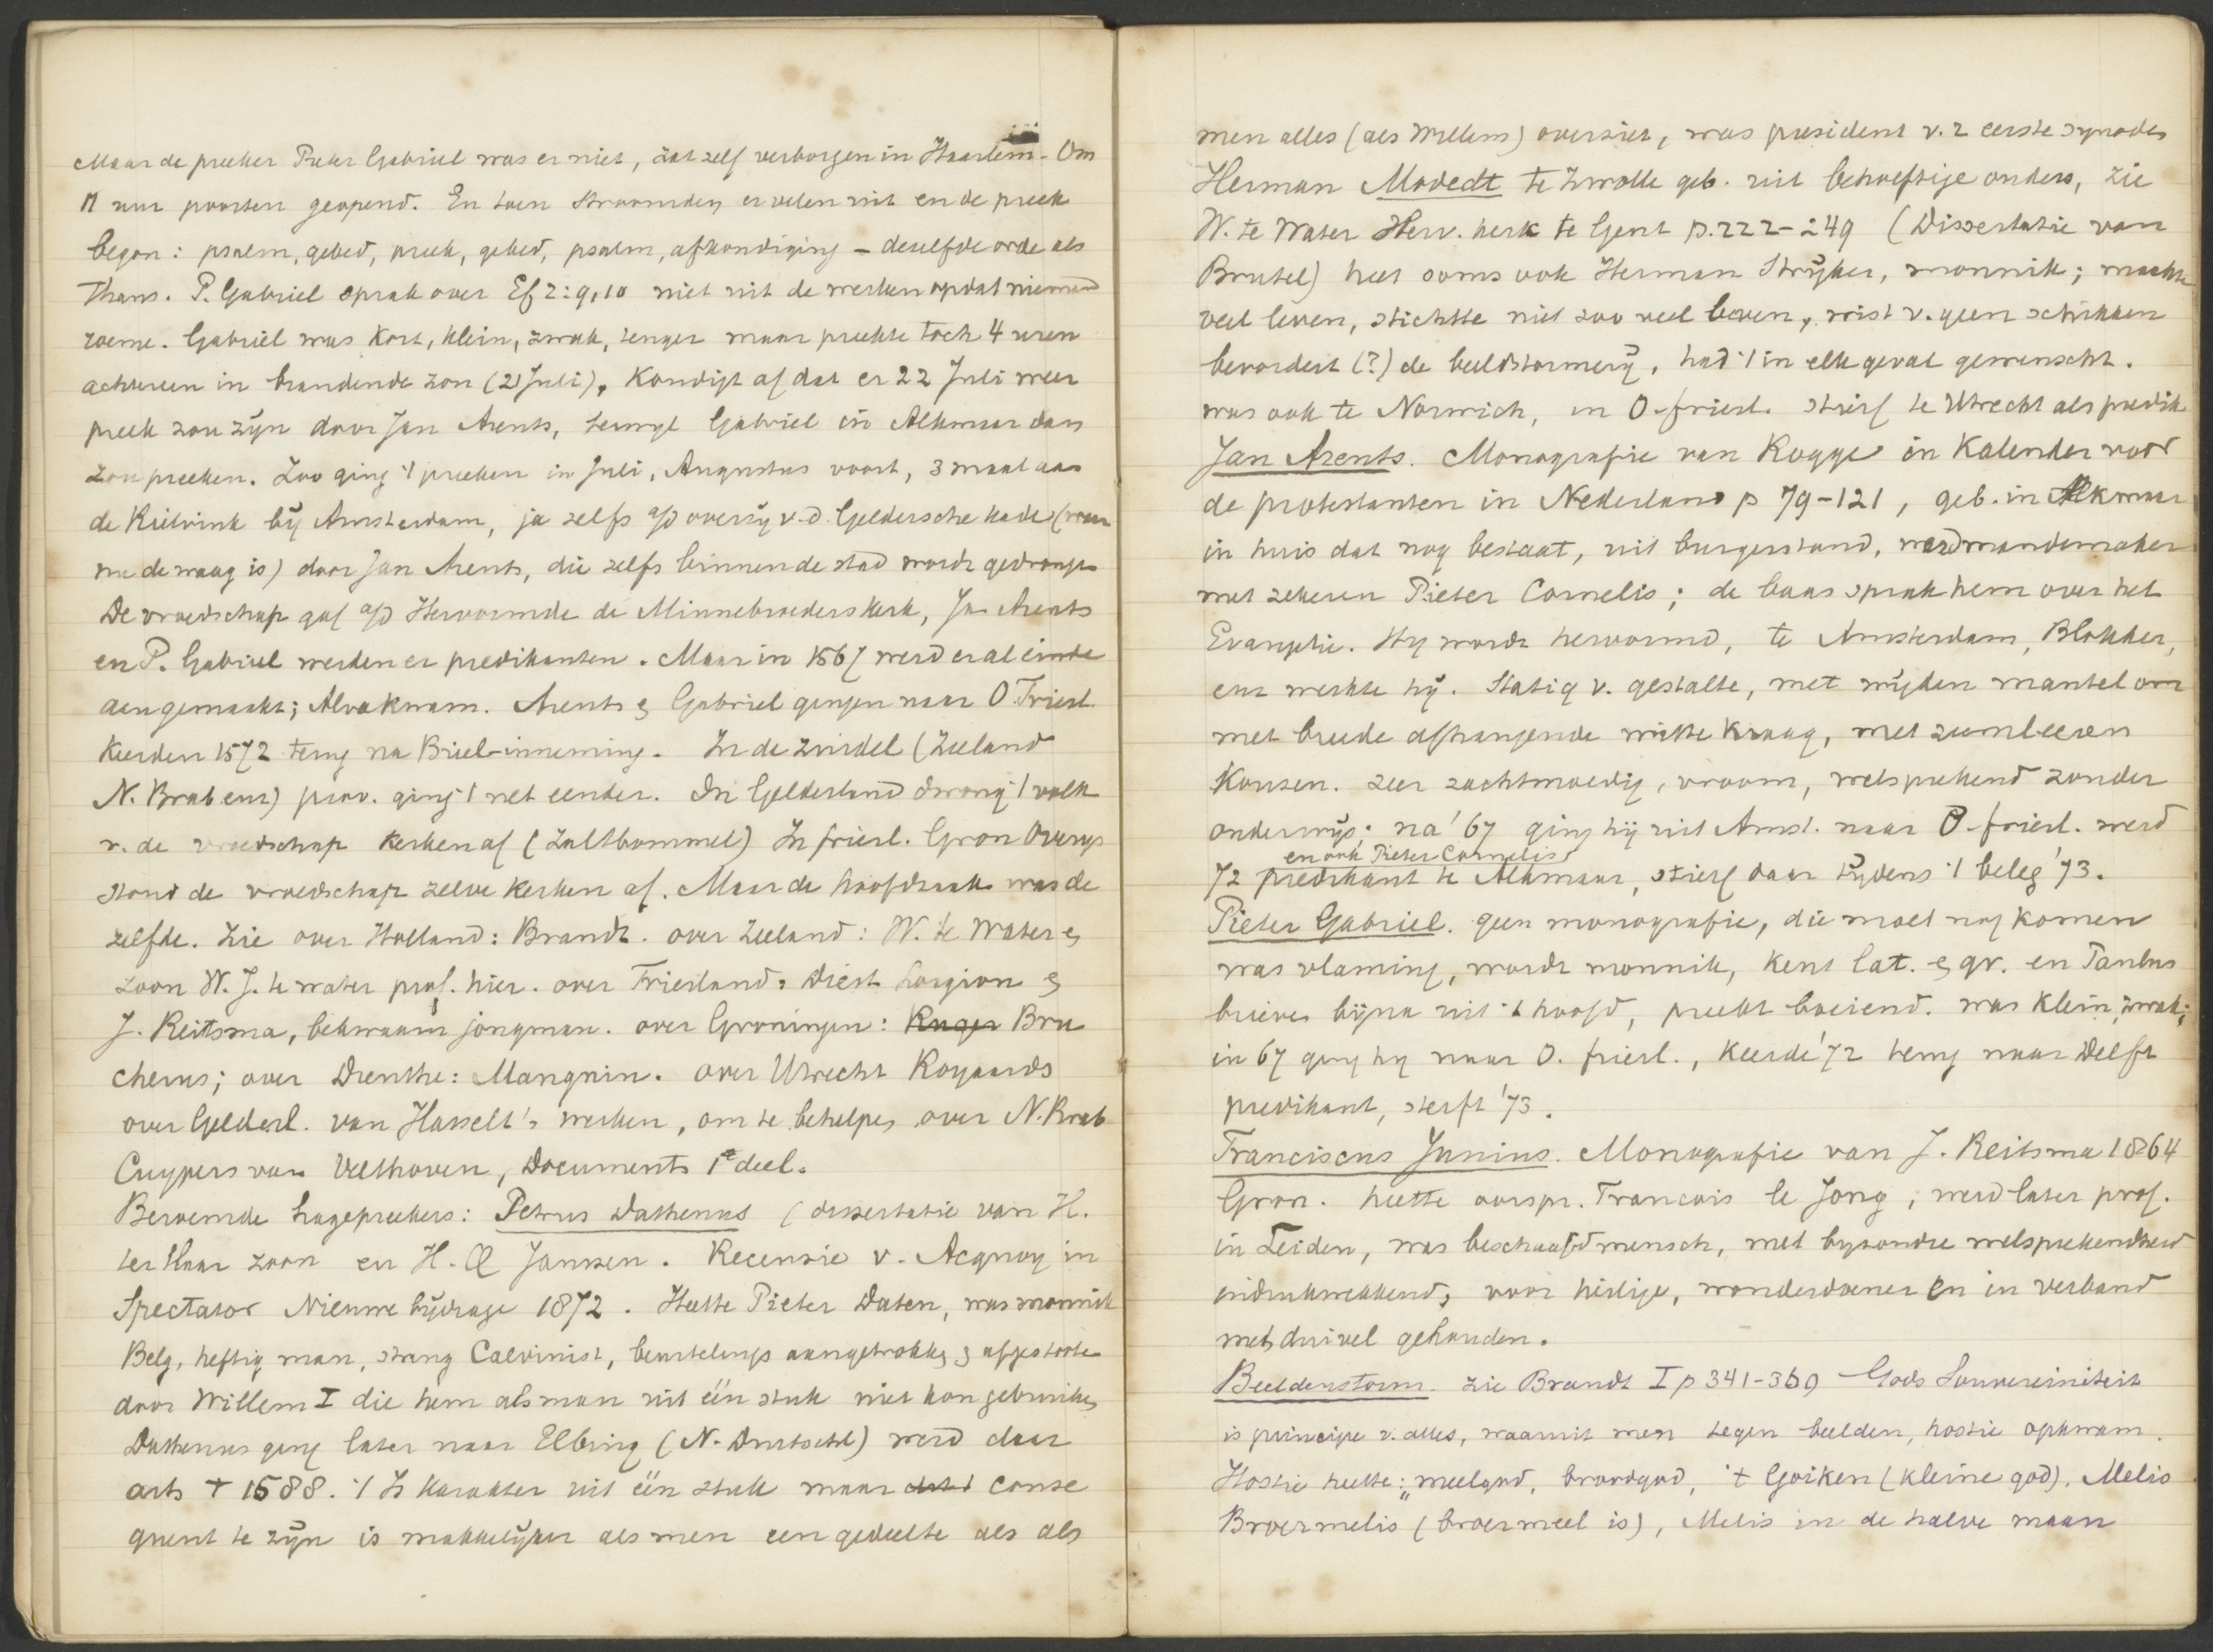 Maar de preeker Pieter Gabriel was er niet, zat zelf verborgen in Haarlem. Om
11 uur poorten geopend. En toen stroomden er velen uit en de preek
begon: psalm, gebed, preek, gebed, psalm, afkondiging – deselfde orde als
thans. P. Gabriel sprak over Ef 2:9,10 niet uit de werken opdat niemand
roeme. Gabriel was kort, klein, zwak, tenger maar preekte toch 4 uren
achtereen in brandende zon (21 Juli), Kondigt af dat er 22 Juli weer
preek zou zijn door Jan Arents, terwyl Gabriel in Alkmaar dan
zou preeken. Zoo ging 't preeken in Juli, Augustus voort, 3 maal aan
de Rietvink bij Amsterdam, ja zelfs a/d overzij v.d. Geldersche kade (waar
nu de waag is) door Jan Arents, die zelfs binnen de stad wordt gedrongen
De vroedschap gaf a/d Hervormde de Minnebroeders kerk, Jan Arents
en P. Gabriel werden er predikanten. Maar in 1567 werd er al einde
aengemaakt; Alva kwam. Arents & Gabriel gingen naar O Friesl.
Keerden 1572 terug na Briel-inneming. In de Zuidel (Zeeland
N. Brab enz) prov. ging 't net eender. In Gelderland drong 't volk
v. de vroedschap kerken af (Zaltbommel) In friesl. Gron Overijs
stond de vroedschap zelve kerken af. Maar de hoofdzaak was de
zelfde. Zie over Holland: Brandt. over Zeeland: W. te Water &
zoon W. J. te water prof. hier. over Friesland: Diest Lorgion &
J. Reitsma, bekwaam jongman. over Groningen: Ruger Bru
cherus; over Drenthe: Magnin. over Utrecht Royaards
over Gelderl. van Hasselt's werken, om te behelpen over N. Brab
Cuypers van Velthoven, Documents 1e deel.
Beroemde hagepreekers: Petrus Dathenus (dissertatie van H.
ter Haar zoon en H. Q Janssen. Recensie v. Acquoy in
Spectator Nieuwe bijdrage 1872. Heette Pieter Daten, was monnik
Belg, heftig man, streng Calvinist, beurtelings aangetrokken & afgestoote
door Willem I die hem als man uit één stuk niet kon gebruiken
Dathenus ging later naar Elbing (N. Duitschl) werd daar
arts † 1588. 't Is karakter uit één stuk maar conse
quent te zijn is makkelijker als men een gedeelte als als
men alles (als Willem) overziet, was president v. 2 eerste synodes
Herman Modedt te Zwolle geb. uit behoeftige ouders, zie
W. te Water Herv. kerk te Gent p. 222-249 (Dissertatie van
Brutel) heet soms ook Herman Strijker, monnik; maakte
veel leven, stichtte niet zoo veel leven, wist v. geen schikken
bevordert (?) de beeldstormerij, had 't in elk geval gewenscht.
was ook te Norwich, in O-friesl. stierf te Utrecht als predik
Jan Arents. Monografie van Rogge in Kalender voor
de protestanten in Nederland p 79-121, geb. in Alkmaar
in huis dat nog bestaat, uit burgerstand, werd mandemaker
met zekeren Pieter Cornelis; de baas sprak hem over het
Evangelie. Hy wordt hervormd, te Amsterdam, Blokker,
enz werkte hij. Statig v. gestalte, met wijden mantel om
met breede afhangende witte kraag, met zeemleeren
Kousen. zeer zachtmoedig, vroom, welsprekend zonder
onderwijs; na '67 ging hij uit Amst. naar O-friesl. werd
en ook Pieter Cornelis
72 predikant te Alkmaar, stierf daar tijdens 't beleg '73.
Pieter Gabriel. geen monografie, die moet nog komen
was vlaming, wordt monnik, kent lat. & gr. en Paulus
brieven bijna uit 't hoofd, preekt boeiend. was klein, zwak;
in 67 ging hij naar O. friesl., keerde '72 terug naar Delft
predikant, sterft '73.
Franciscus Junius. Monografie van J. Reitsma 1864
Gron. heette oorspr. Francois le Jong, werd later prof.
in Leiden, was beschaafd mensch, met byzondre welsprekendheid
indrukwekkend, voor heilige, wonderdoener en in verband
met duivel gehouden.
Beeldenstorm. zie Brandt I p 341-369 Gods Souvereiniteit
is principe v. alles, waaruit men tegen beelden, hostie opkwam.
Hostie heette: "meelgod, broodgod, 't Goiken (kleine god). Melis
Broermelis (broer meel is), Melis in de halve maan